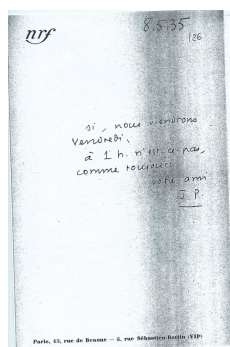 nrf
8.5.35
/26
si, nous viendrons
Vendredi,
à 1 h. n'est-ce pas,
comme toujours
votre ami
J. P.
Paris, 43, rue de Beaune — 5, rue Sébastien-Bottin (VIIᵉ)